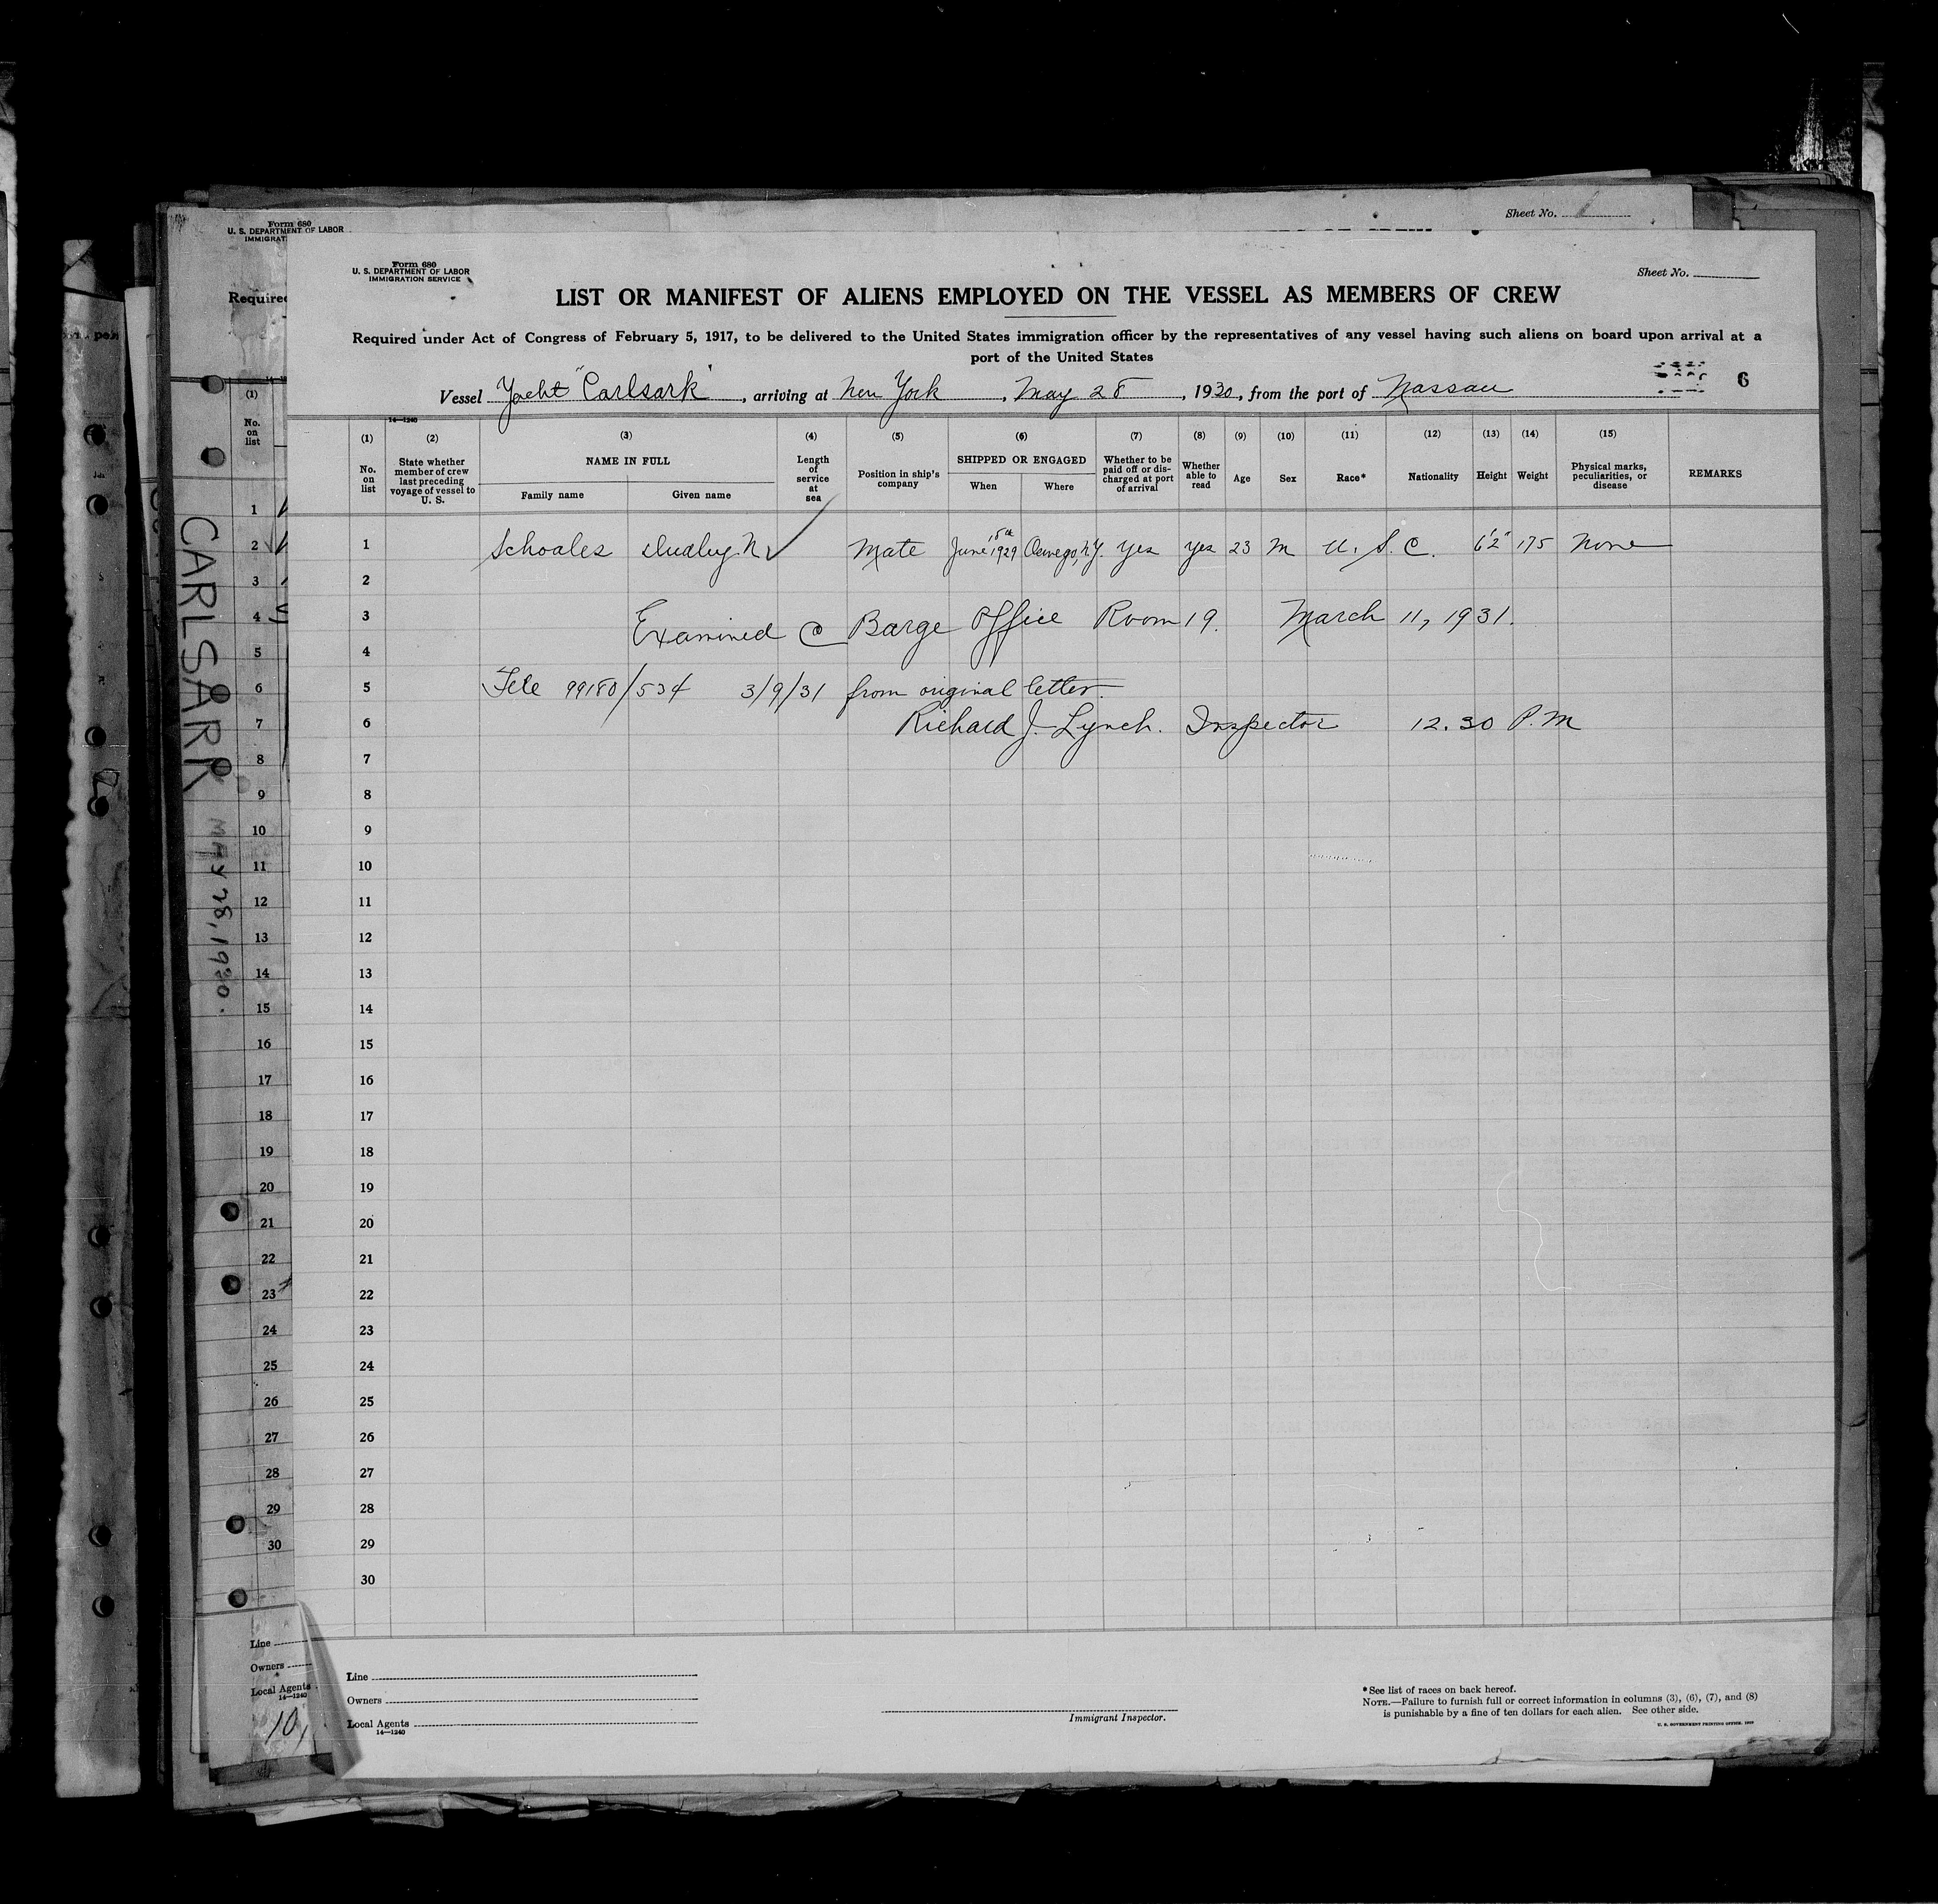 Form 680
U. S. DEPARTMENT OF LABOR
IMMIGRAT
Sheet No.
Required
(1)
No. on list
CARLSARK MAY 28, 1930.
1
2
3
4
5
6
7
8
9
10
11
12
13
14
15
16
17
18
19
20
21
22
23
24
25
26
27
28
29
30
Line
Owners
Local Agents
14—1240
10,
Form 680
U. S. DEPARTMENT OF LABOR
IMMIGRATION SERVICE
Sheet No.
LIST OR MANIFEST OF ALIENS EMPLOYED ON THE VESSEL AS MEMBERS OF CREW
Required under Act of Congress of February 5, 1917, to be delivered to the United States immigration officer by the representatives of any vessel having such aliens on board upon arrival at a
port of the United States
6
Vessel Yacht "Carlsark", arriving at New York, May 28, 1930, from the port of Nassau
14—1240
(1) (2) (3) (4) (5) (6) (7) (8) (9) (10) (11) (12) (13) (14) (15)
No. on list
State whether member of crew last preceding voyage of vessel to U. S.
NAME IN FULL
Family name
Given name
Length of service at sea
Position in ship's company
SHIPPED OR ENGAGED
When
Where
Whether to be paid off or discharged at port of arrival
Whether able to read
Age
Sex
Race*
Nationality
Height
Weight
Physical marks, peculiarities, or disease
REMARKS
1 Schoales Dudley N Mate June 1929 Oswego, N.Y. Yes yes 23 M U. S. C. 6'2" 175 None
2
3 Examined @ Barge Office Room 19. March 11, 1931.
4
5 File 99180/534 3/9/31 from original letter.
6 Richard J. Lynch. Inspector 12.30 P.M
7
8
9
10
11
12
13
14
15
16
17
18
19
20
21
22
23
24
25
26
27
28
29
30
Line
Owners
Local Agents
14—1240
Immigrant Inspector.
*See list of races on back hereof.
NOTE.—Failure to furnish full or correct information in columns (3), (6), (7), and (8)
is punishable by a fine of ten dollars for each alien. See other side.
U. S. GOVERNMENT PRINTING OFFICE